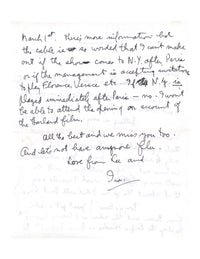 March 1st. Here's more information but
the cable is so worded that I can't make
out if the show comes to N.Y. after Paris
or if the management is accepting invitations
to play Florence, Venice etc. If N.Y. is
played immediately after Paris – no – I won't
be able to attend the opening on account of
the Garland film.
All the best and we miss you too.
And let's not have anymore flu.
Love from Lee and
Ira